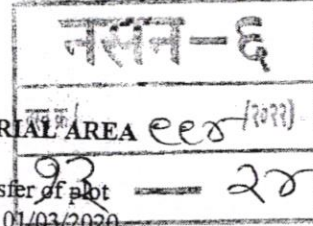 नसन-६
RIAL AREA ९९४ /२०२२)
sfer of plot १३ — २४
01/03/2020